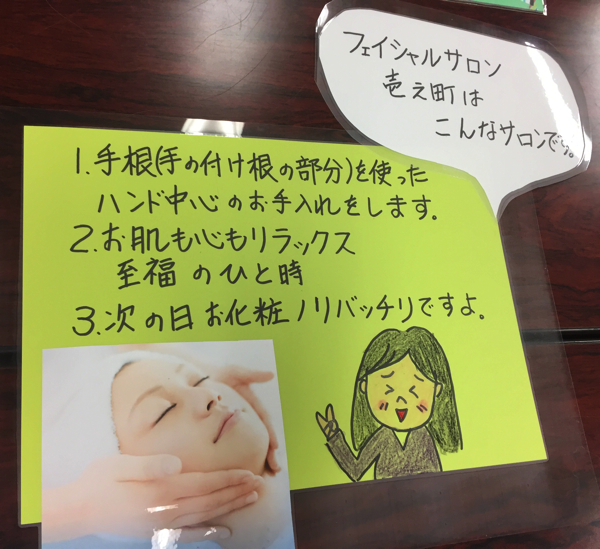 フェイシャルサロン
壱之町は
こんなサロンです。
1.手根(手の付け根の部分)を使った
ハンド中心のお手入れをします。
2.お肌も心もリラックス
至福のひと時
3.次の日お化粧ノリバッチリですよ。